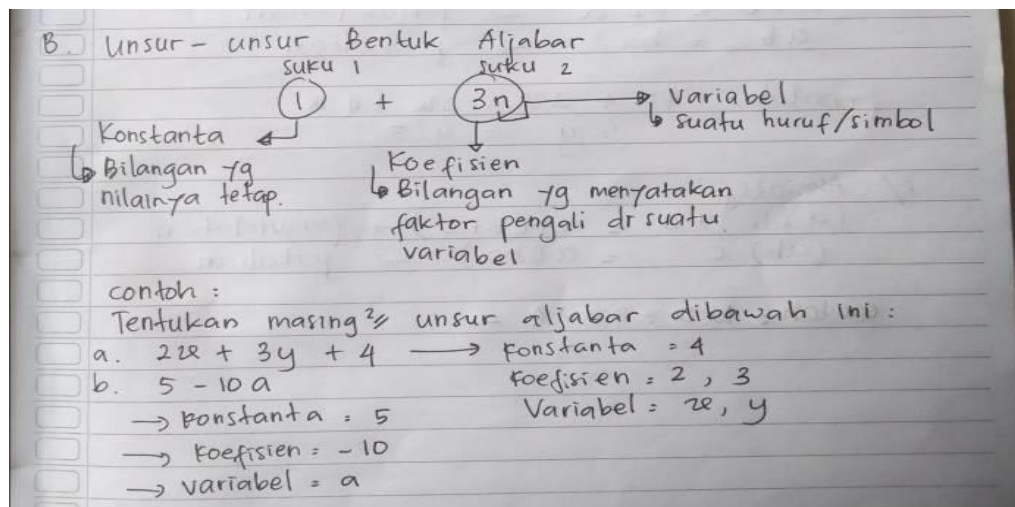 B. Unsur - unsur Bentuk Aljabar
suku 1 suku 2
1 + 3n → Variabel
↳ suatu huruf/simbol
Konstanta
↳ Bilangan yg
nilainya tetap.
Koefisien
↳ Bilangan yg menyatakan
faktor pengali dr suatu
variabel
contoh :
Tentukan masing²// unsur aljabar dibawah ini :
a. 2x + 3y + 4 → konstanta = 4
koefisien = 2, 3
Variabel = x, y
b. 5 - 10a
→ konstanta = 5
→ koefisien = -10
→ variabel = a